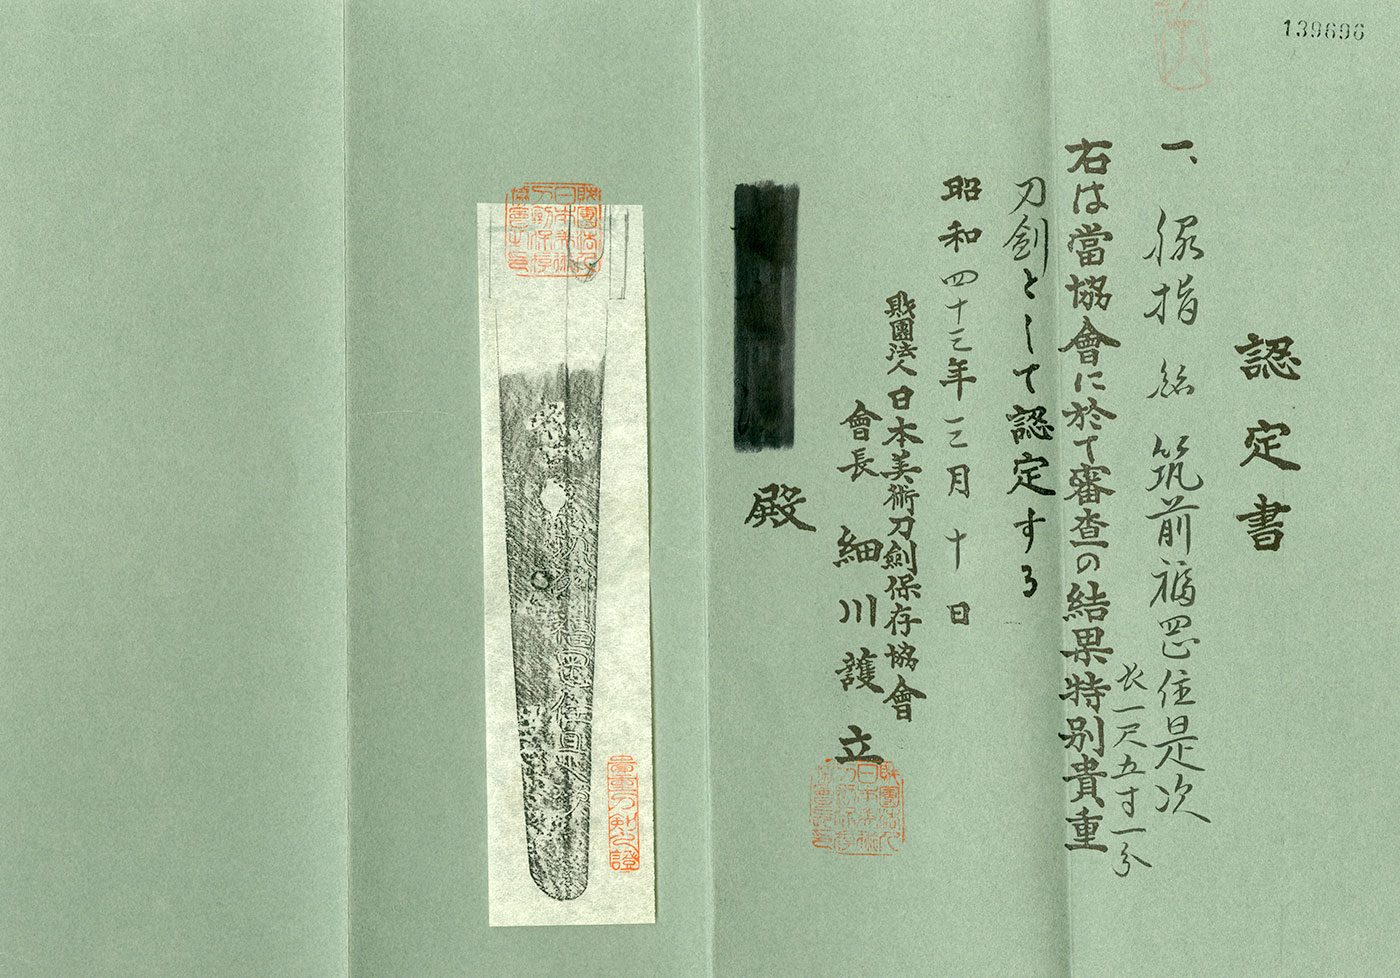 139696
認定書
一、脇指 銘 筑前福岡住是次
長一尺五寸一分
右は當協會に於て審查の結果特別貴重
刀劍として認定する
昭和四十三年三月十日
財團法人日本美術刀劍保存協會
會長 細川護立
殿
財團法人日本美術刀劍保存協會
福岡住是次
貴重刀劍之證